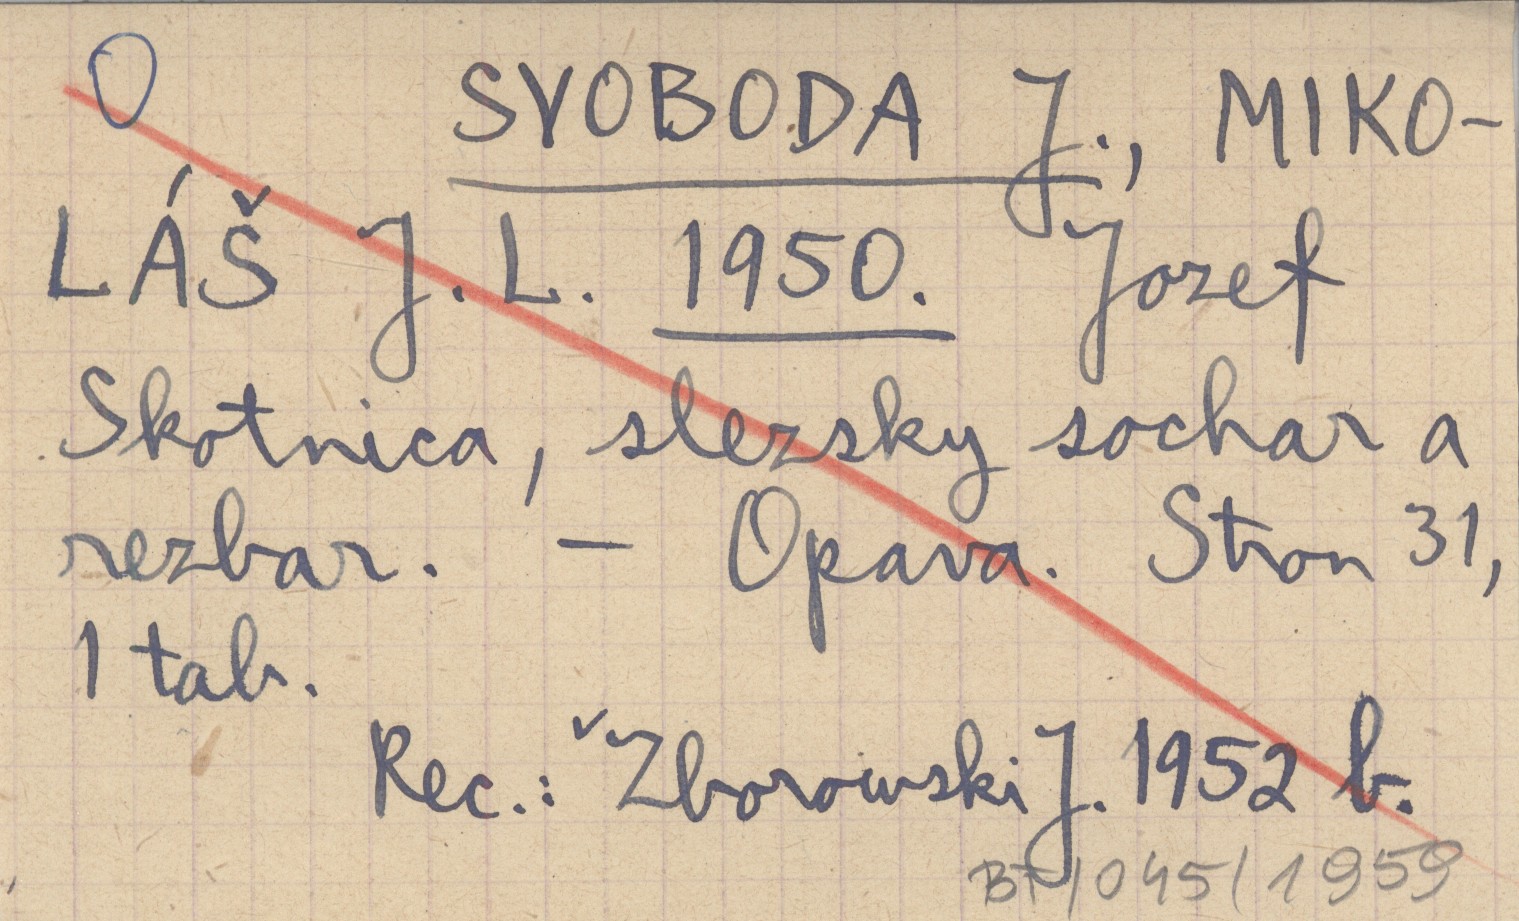 O SVOBODA J., MIKO-
LÁŠ J. L. 1950. Jozef
Skotnica, slezsky sochar a
rezbar. — Opava. Stron 31,
1 tab.
Rec.: ˇZborowski J. 1952 b.
BT/045/1959